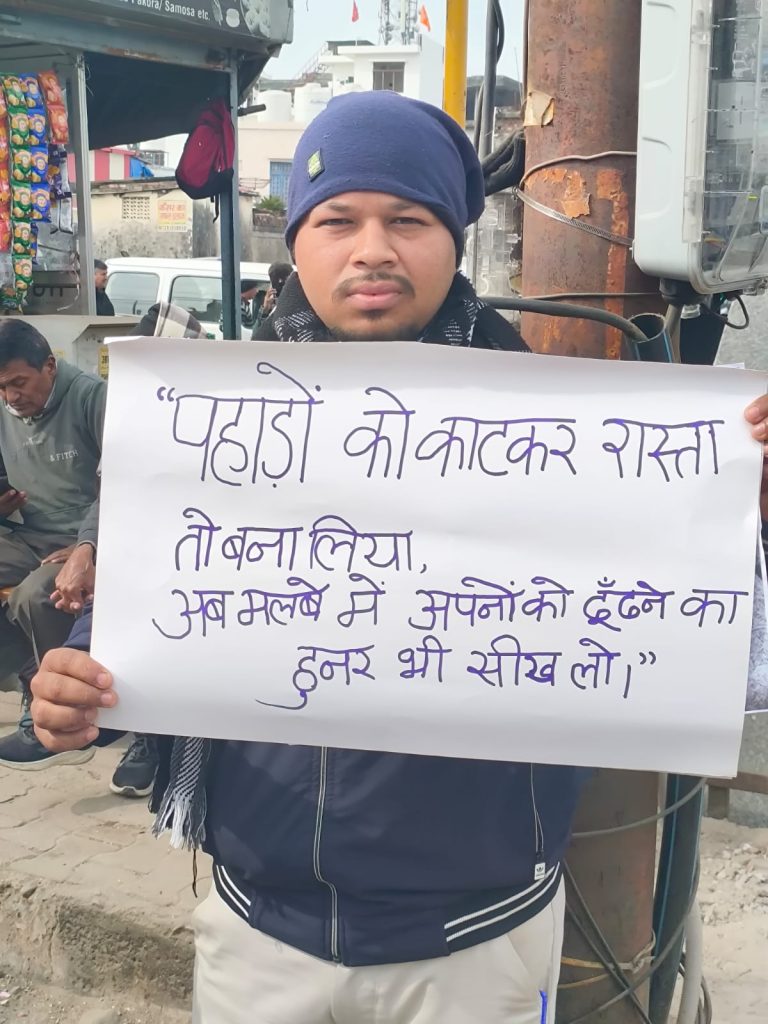 Pakora/ Samosa etc.
& FITCH
“पहाड़ों को काटकर रास्ता
तो बना लिया,
अब मलबे में अपनों को ढूँढने का
हुनर भी सीख लो।”